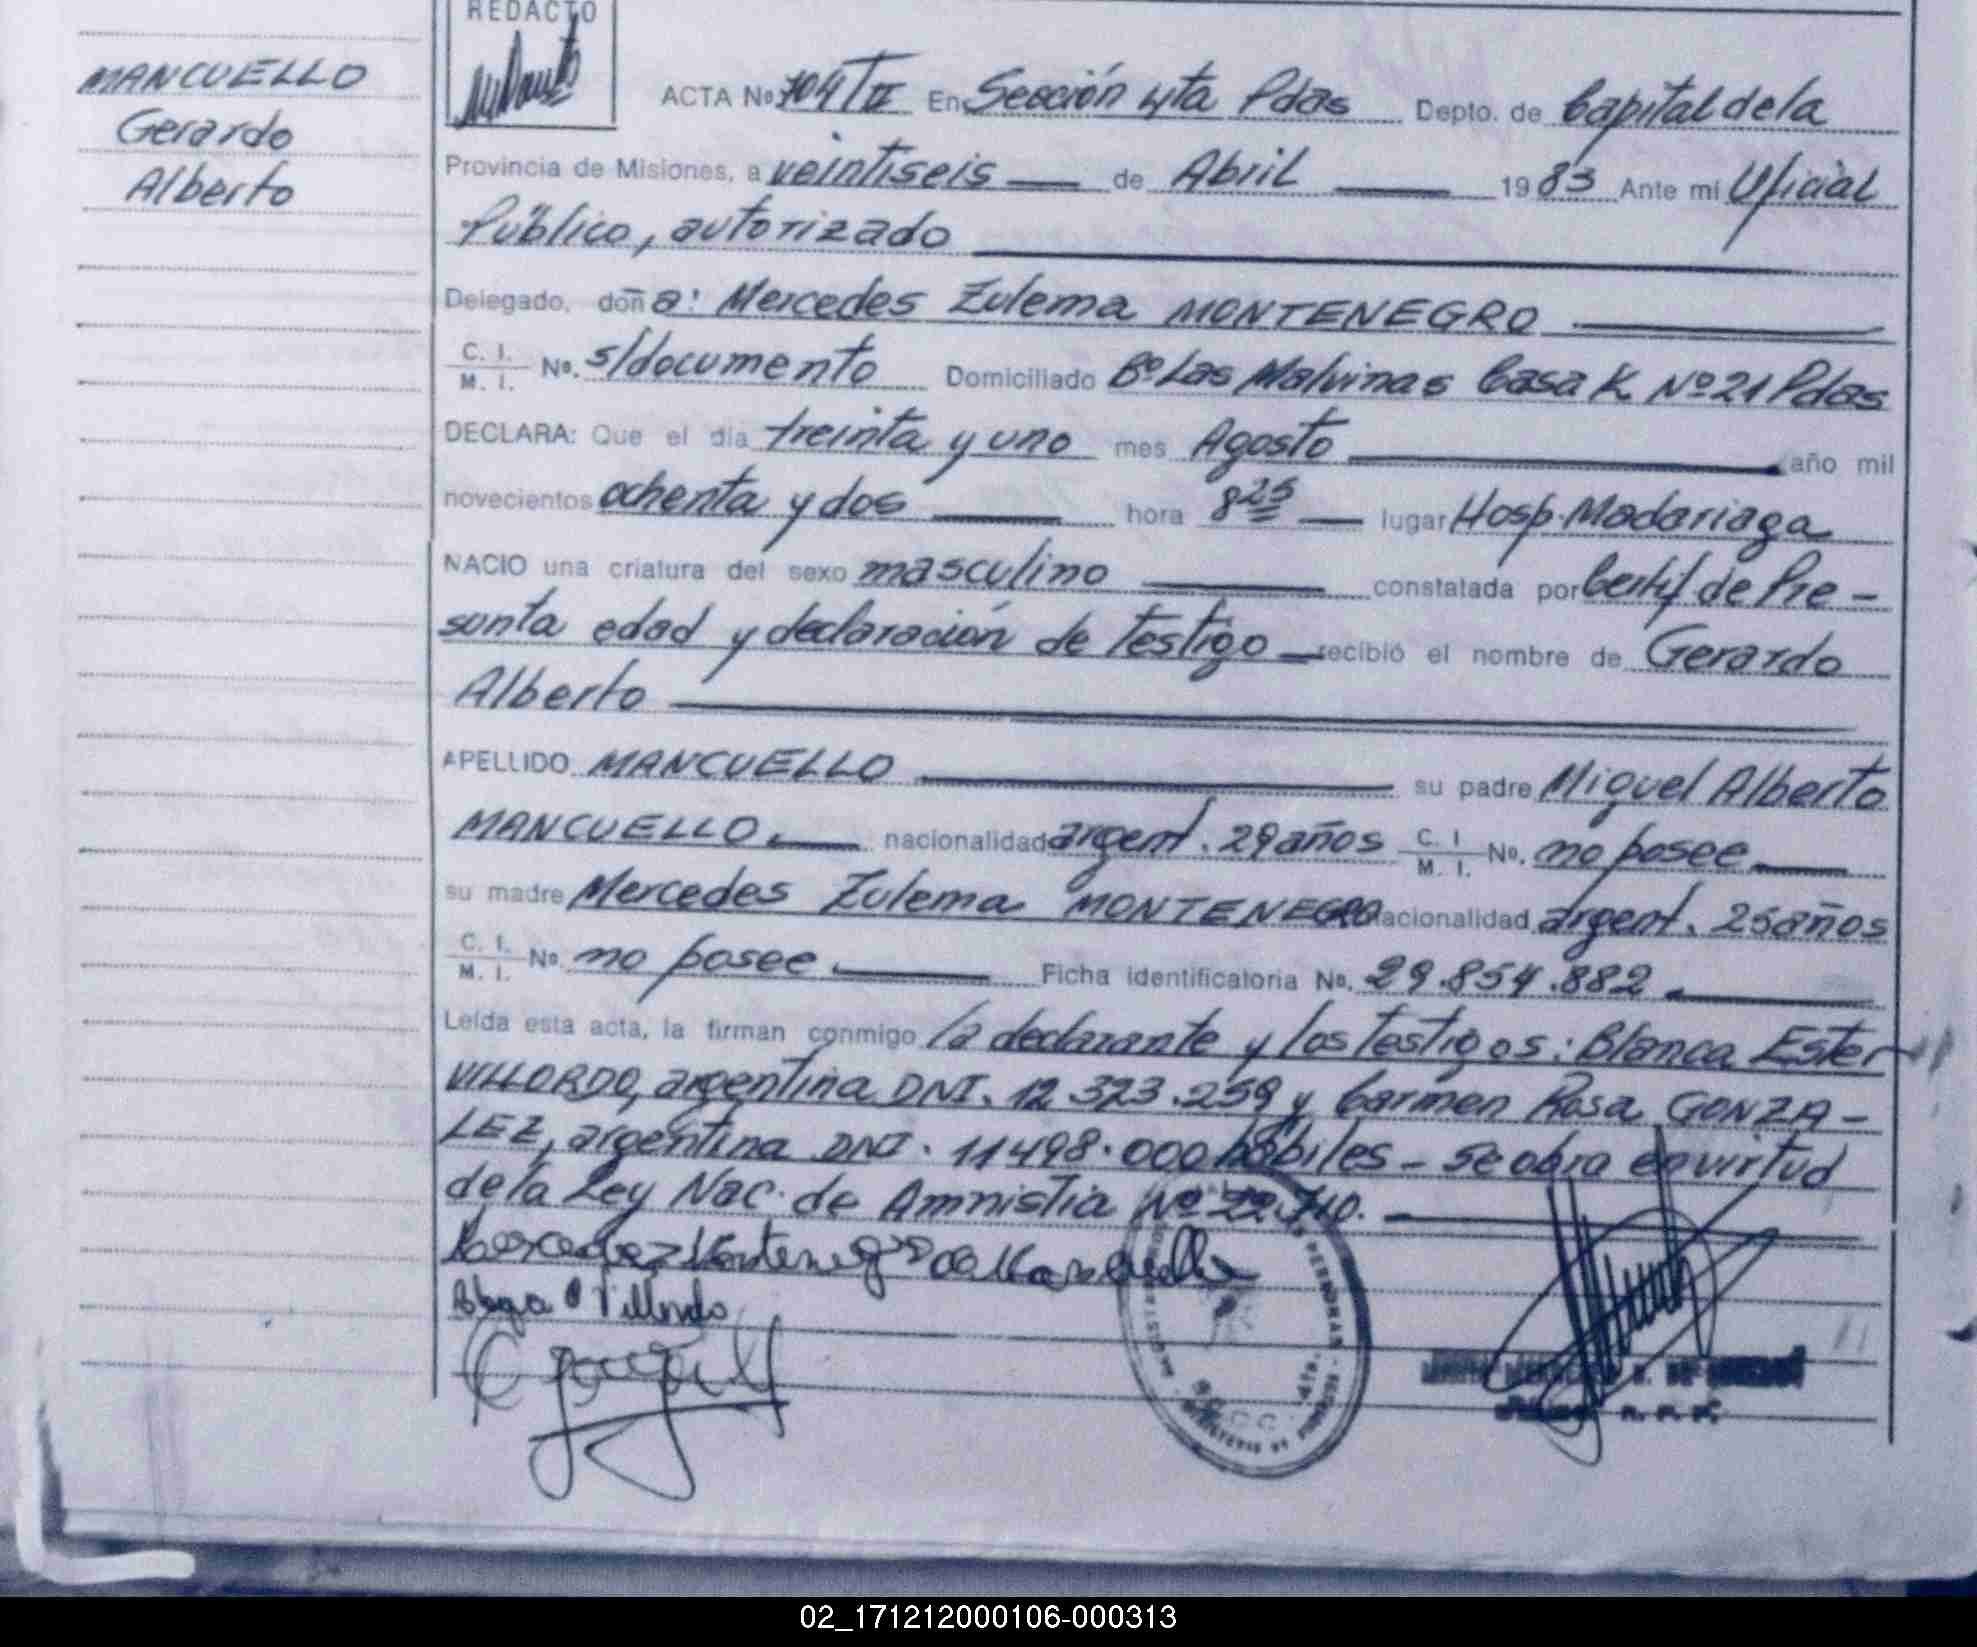 MANCUELLO
Gerardo
Alberto
REDACTO
ACTA No. 704/TII En Sección 4ta Pdas Depto. de Capital de la
Provincia de Misiones, a veintiseis de Abril 1983 Ante mi Oficial
Público, autorizado
Delegado, doña: Mercedes Zulema MONTENEGRO
C. I. M. I. No. s/documento Domiciliado Bº Las Malvinas Casa K Nº 21 Pdas
DECLARA: Que el día treinta y uno mes Agosto año mil
novecientos ochenta y dos hora 8 25 lugar Hosp. Madariaga
NACIO una criatura del sexo masculino constatada por Certif de Pre-
sunta edad y declaración de testigo recibió el nombre de Gerardo
Alberto
APELLIDO MANCUELLO su padre Miguel Alberto
MANCUELLO. nacionalidad argent. 29 años C. I. M. I. No. no posee
su madre Mercedes Zulema MONTENEGRO nacionalidad argent. 25 años
C. I. M. I. No. no posee Ficha identificatoria No. 29.854.882
Leída esta acta, la firman conmigo la declarante y los testigos: Blanca Ester
VILLORDO, argentina DNI. 12.323.259 y Carmen Rosa GONZA-
LEZ, argentina DNI. 11498.000 hábiles - se obra en virtud
de la Ley Nac. de Amnistia Nº 22.710.
Mercedez Montenegro de Mancuello
Villordo
02_171212000106-000313